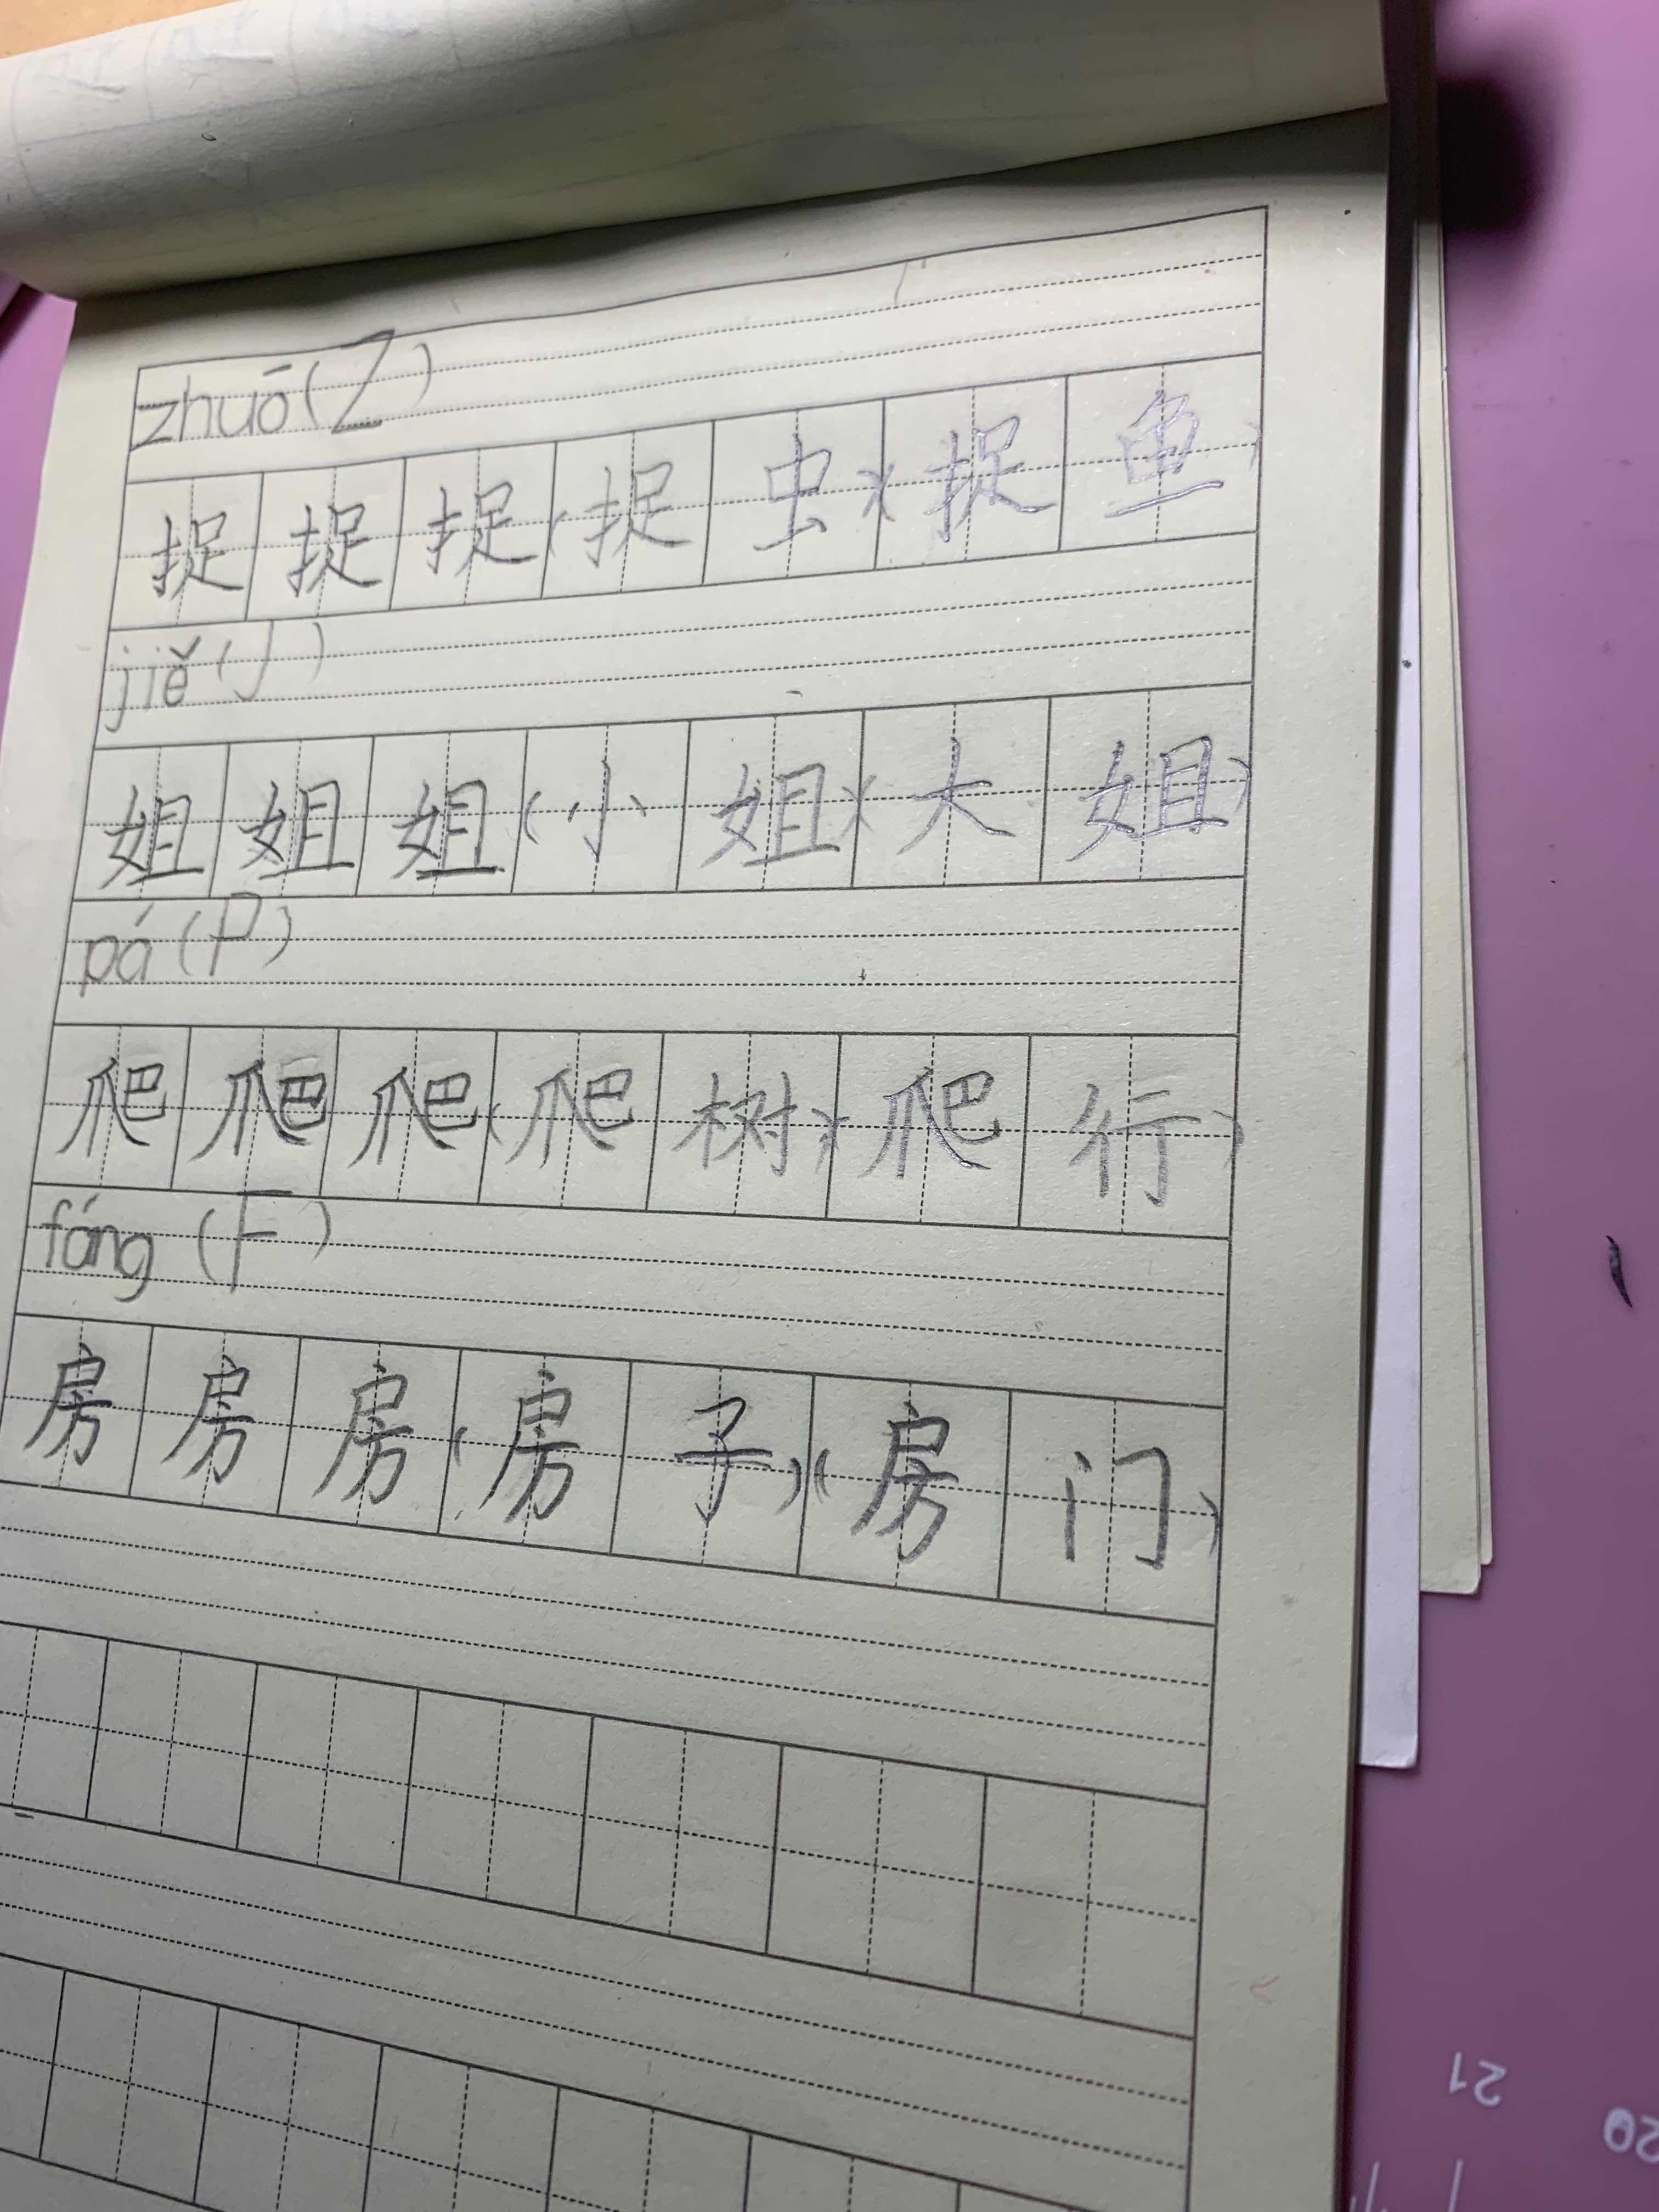 zhuō(Z)
捉捉捉(捉虫)(捉鱼)
jiě(J)
姐姐姐(小姐)(大姐)
pá(P)
爬爬爬(爬树)(爬行)
fáng(F)
房房房(房子)(房门)
21
20